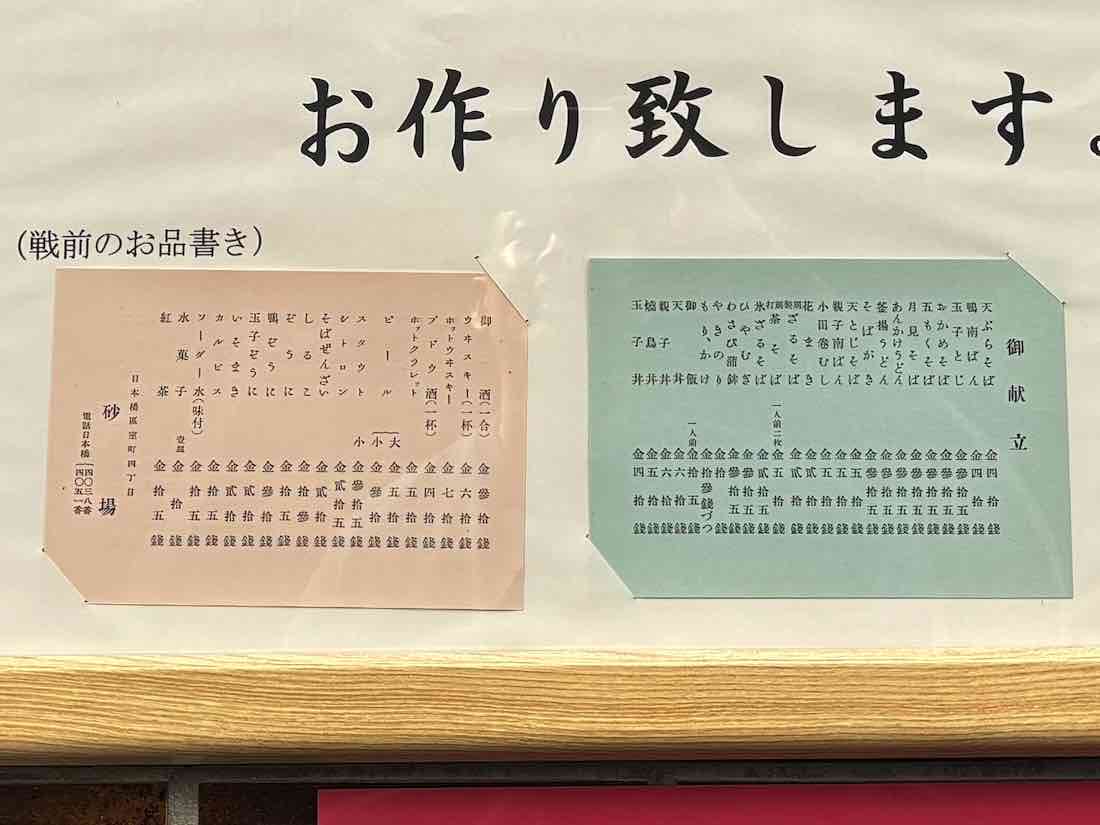 お作り致します。
(戦前のお品書き)
御献立
天ぷらそば 金四拾錢
鴨南ばん 金四拾錢
玉子とじ 金參拾五錢
おかめそば 金參拾五錢
五もくそば 金參拾五錢
月見そば 金參拾五錢
あんかけうどん 金參拾五錢
釜揚うどん 金參拾五錢
そばがき 金參拾五錢
天とじそば 金五拾錢
親子南ばん 金五拾錢
小田巻むし 金五拾錢
花まき 金貳拾錢
ざるそば 金貳拾錢
茶そば 一人前二枚 金五拾錢
氷ざるそば 金貳拾五錢
ひやむぎ 金參拾五錢
わさび蒲鉾 金參拾五錢
やきのり 金拾錢
もり、かけ 金拾參錢づつ
御飯 一人前 金拾五錢
天丼 金六拾錢
親子丼 金六拾錢
燒鳥丼 金五拾錢
玉子丼 金四拾錢
御酒(一合) 金參拾錢
ウヰスキー(一杯) 金六拾錢
ホットウヰスキー 金七拾錢
ブドウ酒(一杯) 金四拾錢
ホットクラレット 金五拾錢
ビール 大 金五拾錢
小 金參拾錢
スタウト 小 金參拾五錢
シトロン 金貳拾五錢
そばぜんざい 金貳拾錢
しるこ 金參拾錢
ぞうに 金拾五錢
鴨ぞうに 金參拾錢
玉子ぞうに 金貳拾錢
いそまき 金貳拾錢
カルピス 金拾五錢
ソーダー水(味付) 金拾五錢
水菓子 壹皿 金拾錢
紅茶 金拾五錢
日本橋區室町四丁目
砂場
電話日本橋 四〇三八番
四〇五一番